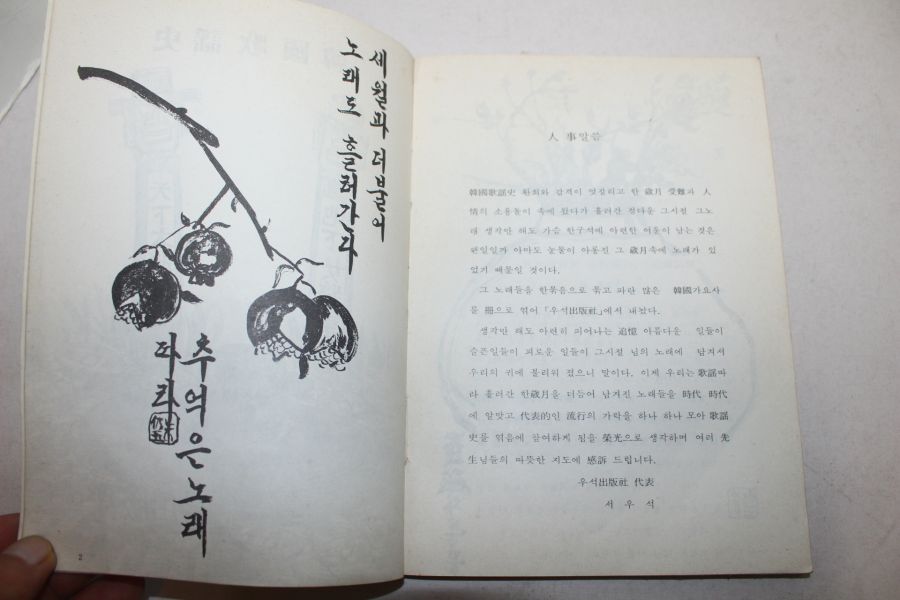 세월과 더불어
노래도 흘러간다
추억은 노래
따라
2
人事말씀
韓國歌謠史 환희와 감격이 엇갈리고 한 歲月 受難과 人
情의 소용돌이 속에 왔다가 흘러간 정다운 그시절 그노
래 생각만 해도 가슴 한구석에 아련한 여운이 남는 것은
웬일일까 아마도 눈물이 아롱진 그 歲月속에 노래가 있
었기 때문일 것이다.
그 노래들을 한묶음으로 묶고 파란 많은 韓國가요사
를 冊으로 엮어 「우석出版社」에서 내놨다.
생각만 해도 아련히 피어나는 追憶 아름다운 일들이
슬픈일들이 괴로운 일들이 그시절 님의 노래에 담겨서
우리의 귀에 불리워 졌으니 말이다. 이제 우리는 歌謠따
라 흘러간 한歲月을 더듬어 남겨진 노래들을 時代 時代
에 알맞고 代表的인 流行의 가락을 하나 하나 모아 歌謠
史를 엮음에 참여하게 됨을 榮光으로 생각하며 여러 先
生님들의 따뜻한 지도에 感訴 드립니다.
우석出版社 代表
서 우 석